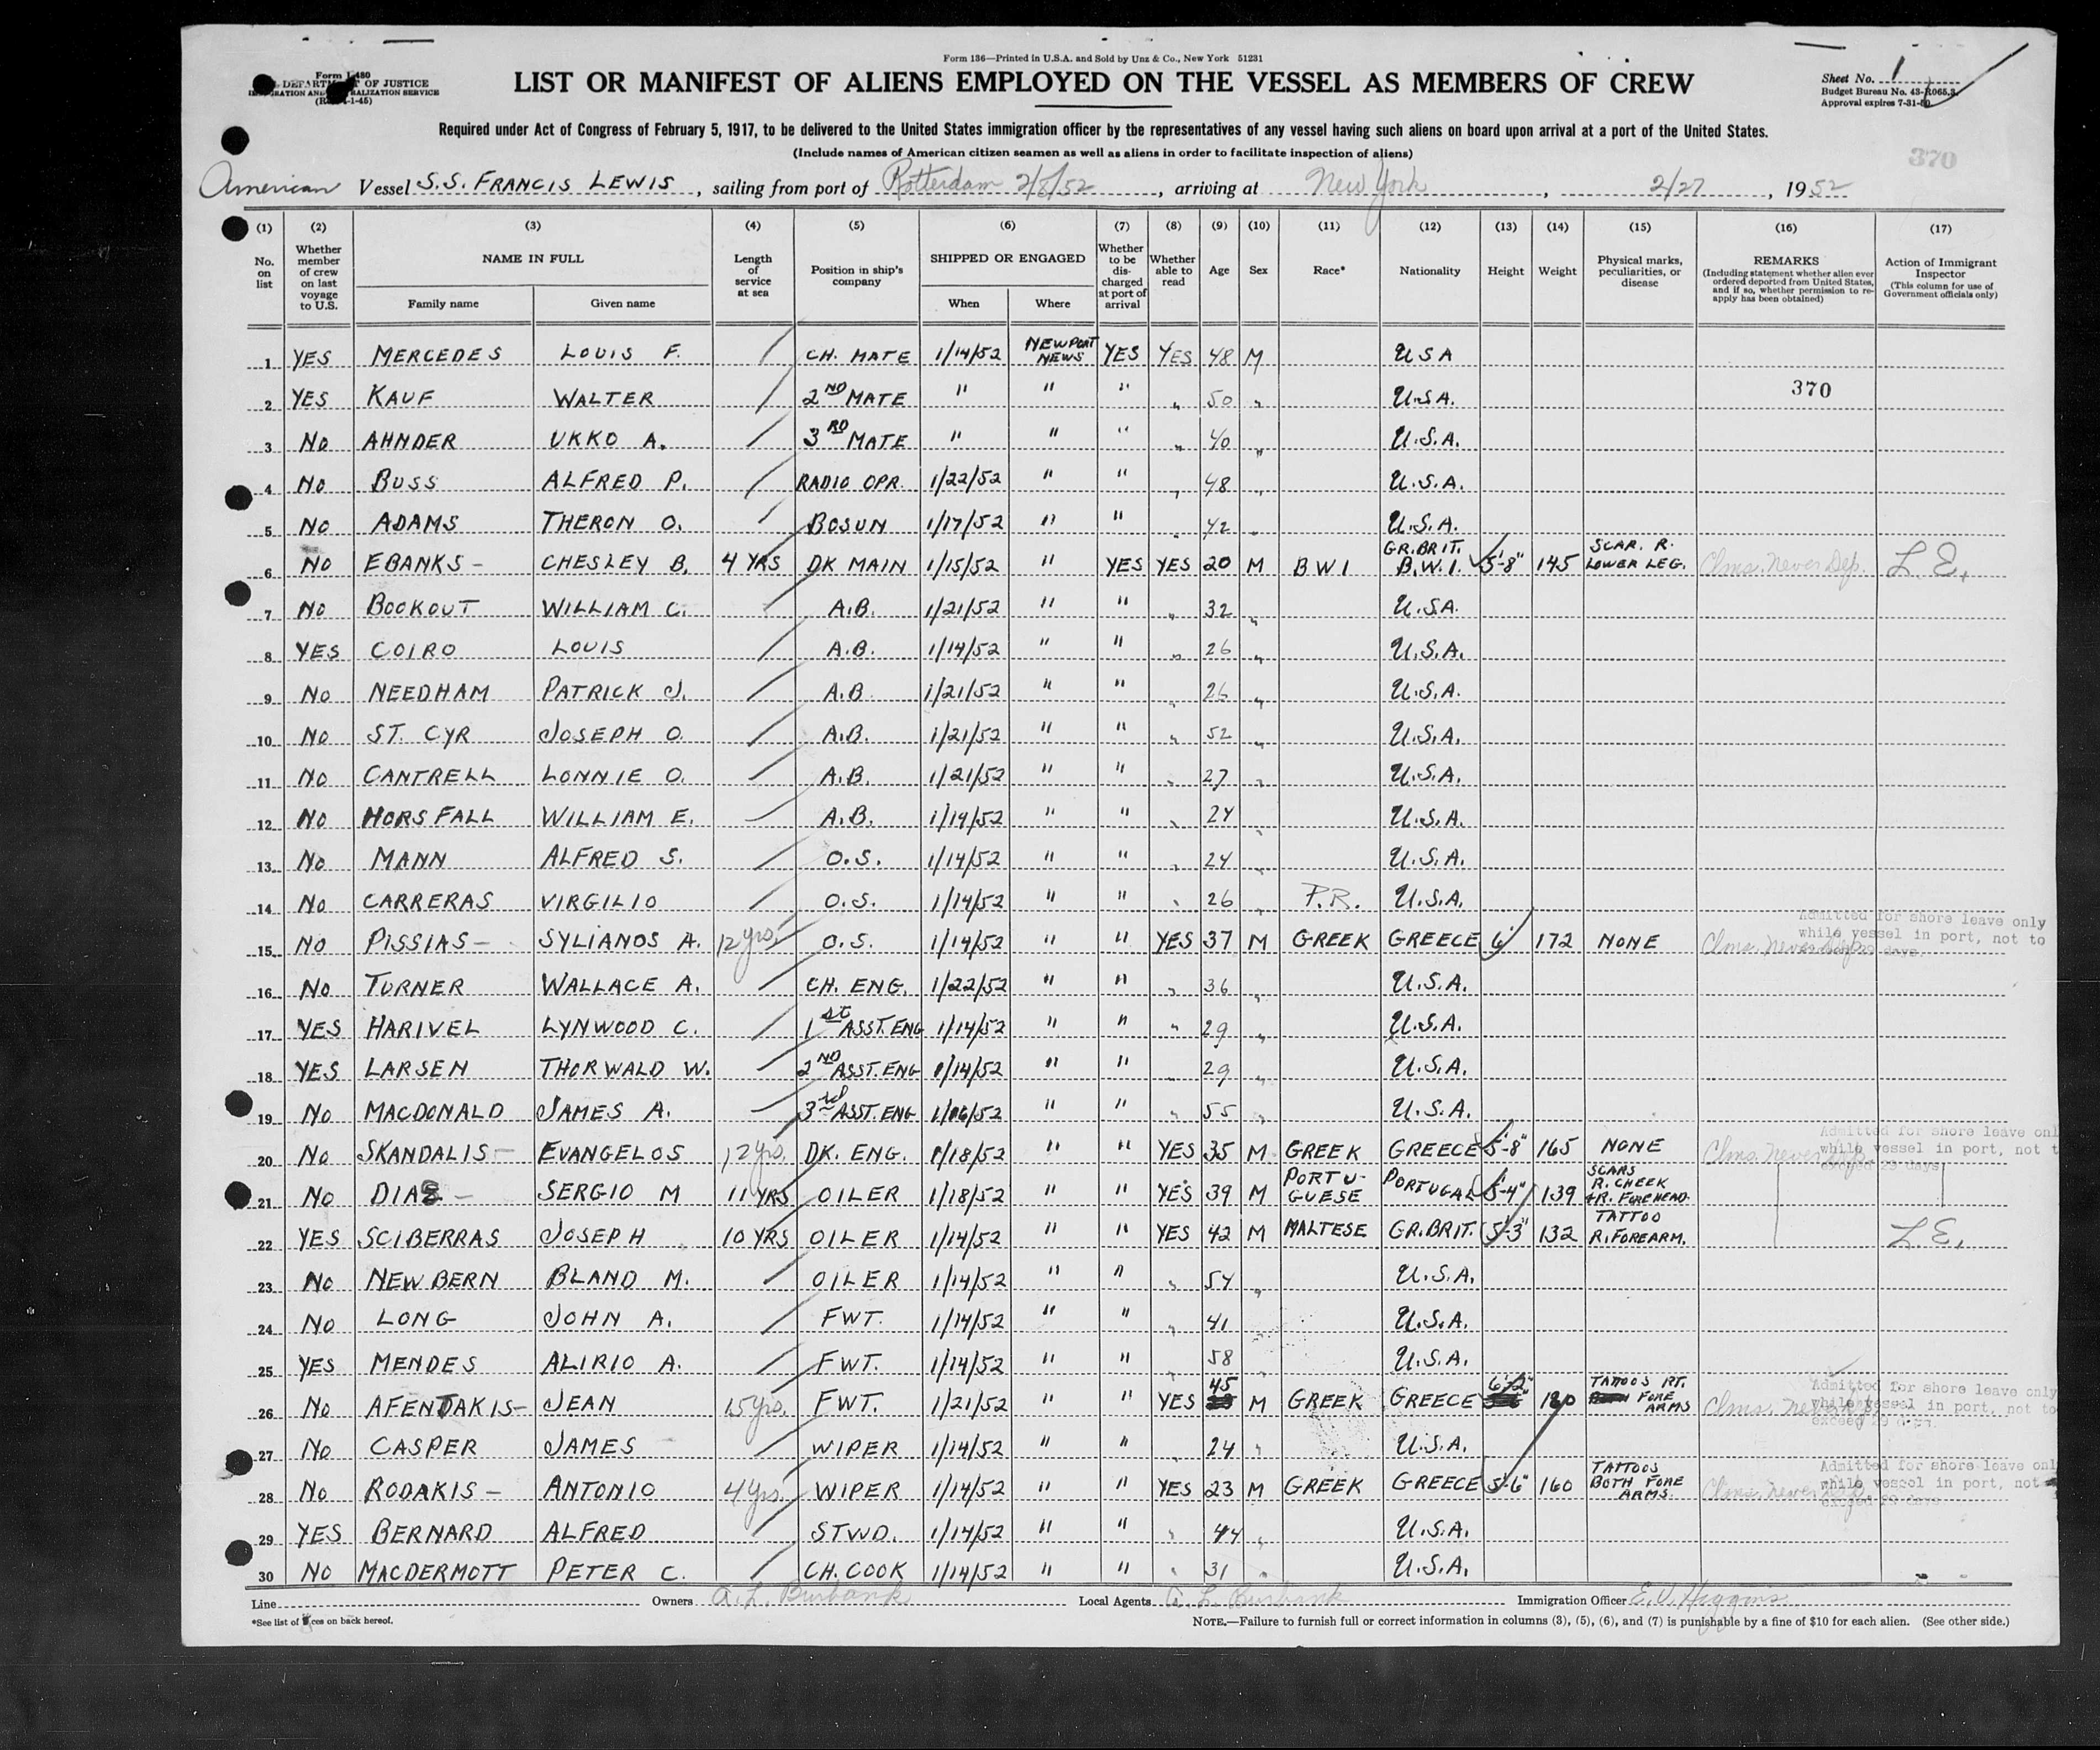 Form 136—Printed in U.S.A. and Sold by Unz & Co., New York 51231
Form I-480
DEPARTMENT OF JUSTICE
IMMIGRATION AND NATURALIZATION SERVICE
LIST OR MANIFEST OF ALIENS EMPLOYED ON THE VESSEL AS MEMBERS OF CREW
Sheet No. 1
Budget Bureau No. 43-R065.3
Approval expires 7-31-50
Required under Act of Congress of February 5, 1917, to be delivered to the United States immigration officer by the representatives of any vessel having such aliens on board upon arrival at a port of the United States.
(Include names of American citizen seamen as well as aliens in order to facilitate inspection of aliens)
370
American Vessel S.S. FRANCIS LEWIS, sailing from port of Rotterdam 2/8/52, arriving at New York, 2/27, 1952
(1) (2) (3) (4) (5) (6) (7) (8) (9) (10) (11) (12) (13) (14) (15) (16) (17)
No. on list
Whether member of crew on last voyage to U.S.
NAME IN FULL
Family name
Given name
Length of service at sea
Position in ship's company
SHIPPED OR ENGAGED
When
Where
Whether to be discharged at port of arrival
Whether able to read
Age
Sex
Race*
Nationality
Height
Weight
Physical marks, peculiarities, or disease
REMARKS
(Including statement whether alien ever ordered deported from United States, and if so, whether permission to reapply has been obtained)
Action of Immigrant Inspector
(This column for use of Government officials only)
1 YES MERCEDES LOUIS F. / CH. MATE 1/14/52 NEWPORT NEWS YES YES 48 M USA
2 YES KAUF WALTER / 2ND MATE " " " " 50 " U.S.A. 370
3 NO AHNDER UKKO A. / 3RD MATE " " " " 40 " U.S.A.
4 NO BUSS ALFRED P. / RADIO OPR. 1/22/52 " " " 48 " U.S.A.
5 NO ADAMS THERON O. / BOSUN 1/17/52 " " " 42 " U.S.A.
6 NO EBANKS - CHESLEY B. 4 YRS DK MAIN 1/15/52 " YES YES 20 M BWI GR.BRIT. B.W.I. 5'-8" 145 SCAR. R. LOWER LEG. Clms. Never Dep. L.E.
7 NO BOOKOUT WILLIAM C. / A.B. 1/21/52 " " " 32 " U.S.A.
8 YES COIRO LOUIS / A.B. 1/14/52 " " " 26 " U.S.A.
9 NO NEEDHAM PATRICK J. / A.B. 1/21/52 " " " 26 " U.S.A.
10 NO ST. CYR JOSEPH O. / A.B. 1/21/52 " " " 52 " U.S.A.
11 NO CANTRELL LONNIE O. / A.B. 1/21/52 " " " 27 " U.S.A.
12 NO HORSFALL WILLIAM E. / A.B. 1/14/52 " " " 24 " U.S.A.
13 NO MANN ALFRED S. / O.S. 1/14/52 " " " 24 " U.S.A.
14 NO CARRERAS VIRGILIO / O.S. 1/14/52 " " " 26 " P.R. U.S.A.
15 NO PISSIAS - SYLIANOS A. 12 yrs. O.S. 1/14/52 " " YES 37 M GREEK GREECE 6' 172 NONE Clms. Never Dep. Admitted for shore leave only while vessel in port, not to exceed 29 days.
16 NO TURNER WALLACE A. / CH. ENG. 1/22/52 " " " 36 " U.S.A.
17 YES HARIVEL LYNWOOD C. / 1st ASST. ENG 1/14/52 " " " 29 " U.S.A.
18 YES LARSEN THORWALD W. / 2ND ASST. ENG 1/14/52 " " " 29 " U.S.A.
19 NO MACDONALD JAMES A. / 3rd ASST. ENG 1/16/52 " " " 55 " U.S.A.
20 NO SKANDALIS - EVANGELOS 12 yrs. DK. ENG. 1/18/52 " " YES 35 M GREEK GREECE 5'-8" 165 NONE Clms. Never Dep. Admitted for shore leave onl while vessel in port, not t exceed 29 days
21 NO DIAS - SERGIO M 11 YRS OILER 1/18/52 " " YES 39 M PORTUGUESE PORTUGAL 5'-4" 139 SCARS R. CHEEK + R. FOREHEAD.
22 YES SCIBERRAS JOSEPH 10 YRS OILER 1/14/52 " " YES 42 M MALTESE GR.BRIT. 5'-3" 132 TATTOO R. FOREARM. L.E.
23 NO NEWBERN BLAND M. / OILER 1/14/52 " " " 54 " U.S.A.
24 NO LONG JOHN A. / FWT. 1/14/52 " " " 41 " U.S.A.
25 YES MENDES ALIRIO A. / FWT. 1/14/52 " " " 58 U.S.A.
26 NO AFENTAKIS - JEAN 15 yrs. FWT. 1/21/52 " " YES 45 M GREEK GREECE 6'2" 180 TATTOOS RT. FORE ARMS Clms. Never Dep. Admitted for shore leave only while vessel in port, not to exceed 29 days.
27 NO CASPER JAMES / WIPER 1/14/52 " " " 24 " U.S.A.
28 NO RODAKIS - ANTONIO 4 yrs. WIPER 1/14/52 " " YES 23 M GREEK GREECE 5'-6" 160 TATTOOS BOTH FORE ARMS. Clms. Never Dep. Admitted for shore leave onl while vessel in port, not exceed 29 days.
29 YES BERNARD ALFRED / STWD. 1/14/52 " " " 44 " U.S.A.
30 NO MACDERMOTT PETER C. / CH. COOK 1/14/52 " " " 31 " U.S.A.
Line Owners A. L. Burbank Local Agents A. L. Burbank Immigration Officer E. J. Higgins
*See list of races on back hereof.
NOTE.—Failure to furnish full or correct information in columns (3), (5), (6), and (7) is punishable by a fine of $10 for each alien. (See other side.)